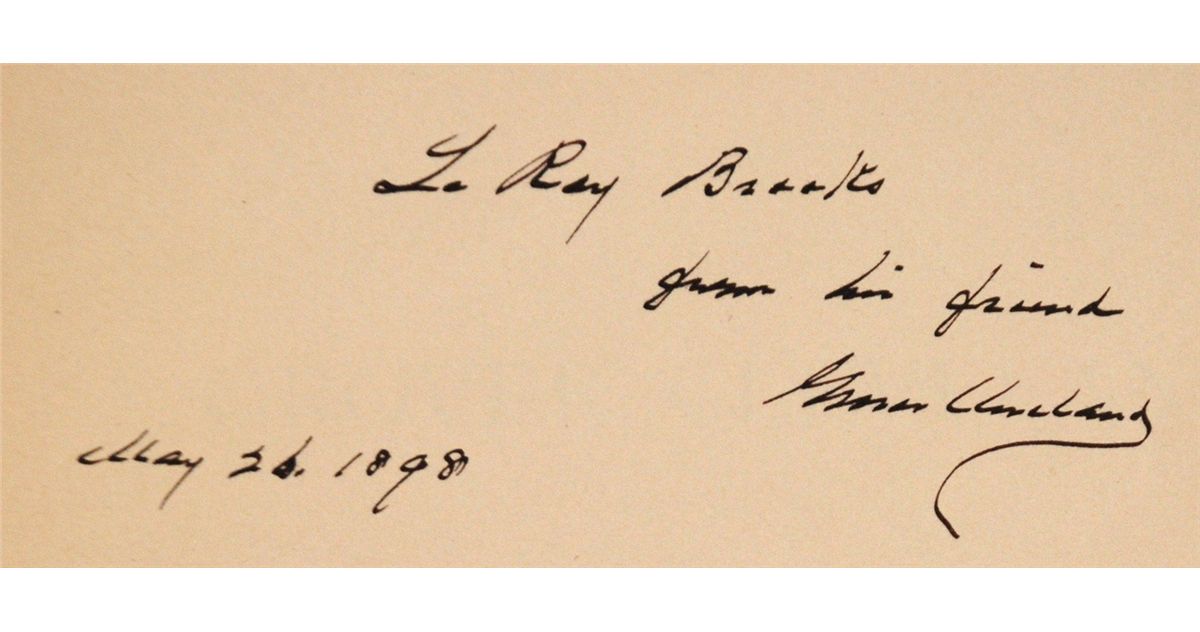 Le Ray Brooks
from his friend
Grover Cleveland
May 26. 1898